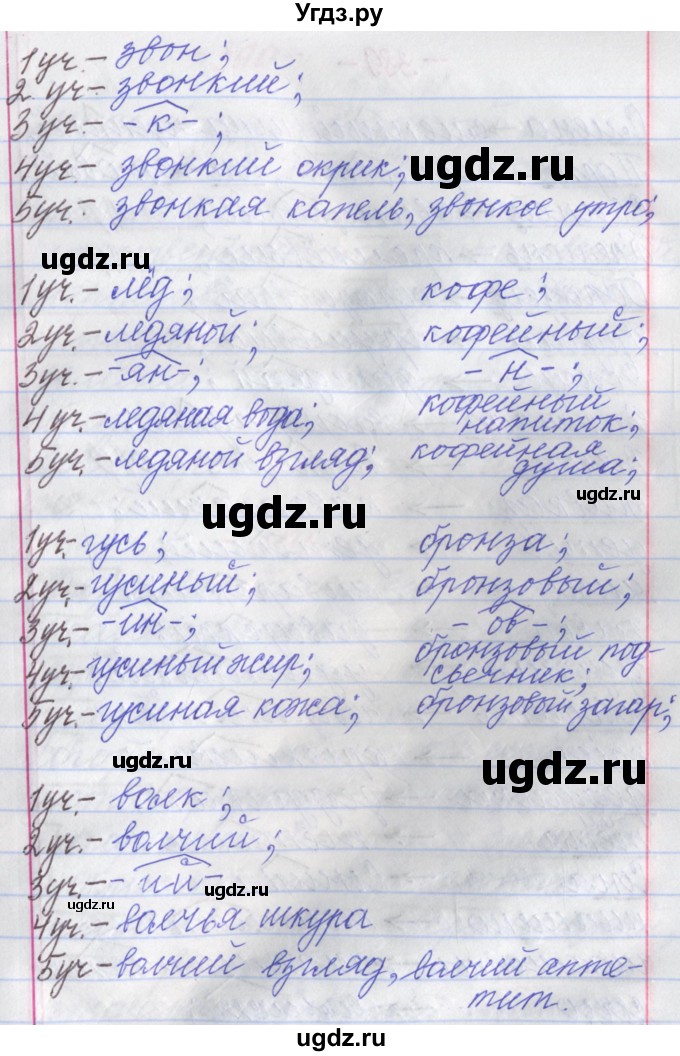 Угдз.ру
1уч.- звон;
2 уч.- звонкий;
3 уч.- -к-;
4уч.- звонкий окрик; ugdz.ru
5уч.- звонкая капель, звонкое утро;
ugdz.ru
1уч.- лёд; кофе;
2уч.- ледяной; кофейный;
3уч.- -ян-; -н-;
4 уч.- ледяная вода; кофейный
напиток;
5уч.- ледяной взгляд; кофейная
душа;
ugdz.ru
ugdz.ru
1уч.- гусь; бронза;
2уч.- гусиный; бронзовый;
3уч.- -ин-; -ов-;
4уч.- гусиный жир; бронзовый под-
свечник;
5уч.- гусиная кожа; бронзовый загар;
ugdz.ru
ugdz.ru
1уч.- волк;
2уч.- волчий;
3уч.- -ий-
ugdz.ru
ugdz.ru
4уч.- волчья шкура
5уч- волчий взгляд, волчий аппе-
тит.
ugdz.ru